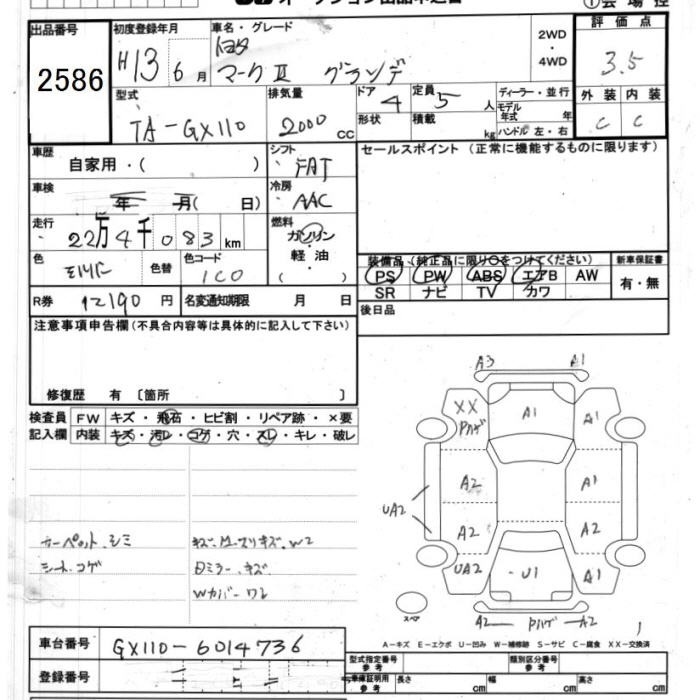 出品番号
2586
初度登録年月
H13 6月
車名・グレード
トヨタ
マークⅡ グランデ
2WD
・
4WD
評価点
3.5
外装 内装
C C
型式
TA-GX110
排気量
2000 CC
ドア 4
形状
定員 5 人
積載 kg
ディーラー・並行
モデル年式 年
ハンドル 左・右
車歴
自家用・( )
シフト
FAT
セールスポイント(正常に機能するものに限ります)
車検
年 月( 日)
冷房
AAC
走行
22万4千083km
燃料
ガソリン
軽油
( )
色
色替
色コード
1C0
R券 12190円
名変通知期限 月 日
装備品(純正品に限り○をつけてください)
PS PW ABS エアB AW
SR ナビ TV カワ
新車保証書
有・無
後日品
注意事項申告欄(不具合内容等は具体的に記入して下さい)
修復歴 有〔箇所 〕
検査員
記入欄
FW キズ・飛石・ヒビ割・リペア跡・×要
内装 キズ・汚レ・コゲ・穴・スレ・キレ・破レ
カーペット シミ
シート コゲ
Dミラー キズ
Wカバー ワレ
A3 A1
XX
Pハゲ
A1
A1
A2
A1
UA2
A2
A2
UA2
U1
A1
スペア
A2 Pハゲ A2
A-キズ E-エクボ U-凹み W-補修跡 S-サビ C-腐食 XX-交換済
車台番号
GX110-6014736
登録番号
型式指定番号
参考
類別区分番号
参考
車庫証明用
参考
長さ cm
幅 cm
高さ cm